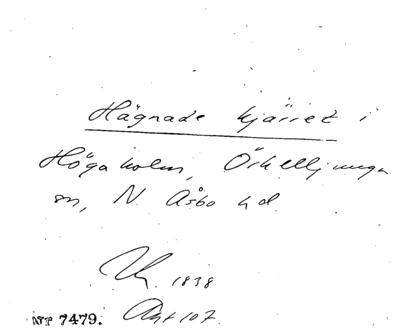 Hägnade kjärret i
Högaholm, Örkelljunga
sn, N Åsbo hd.
1838
NT 7479. Akt 107